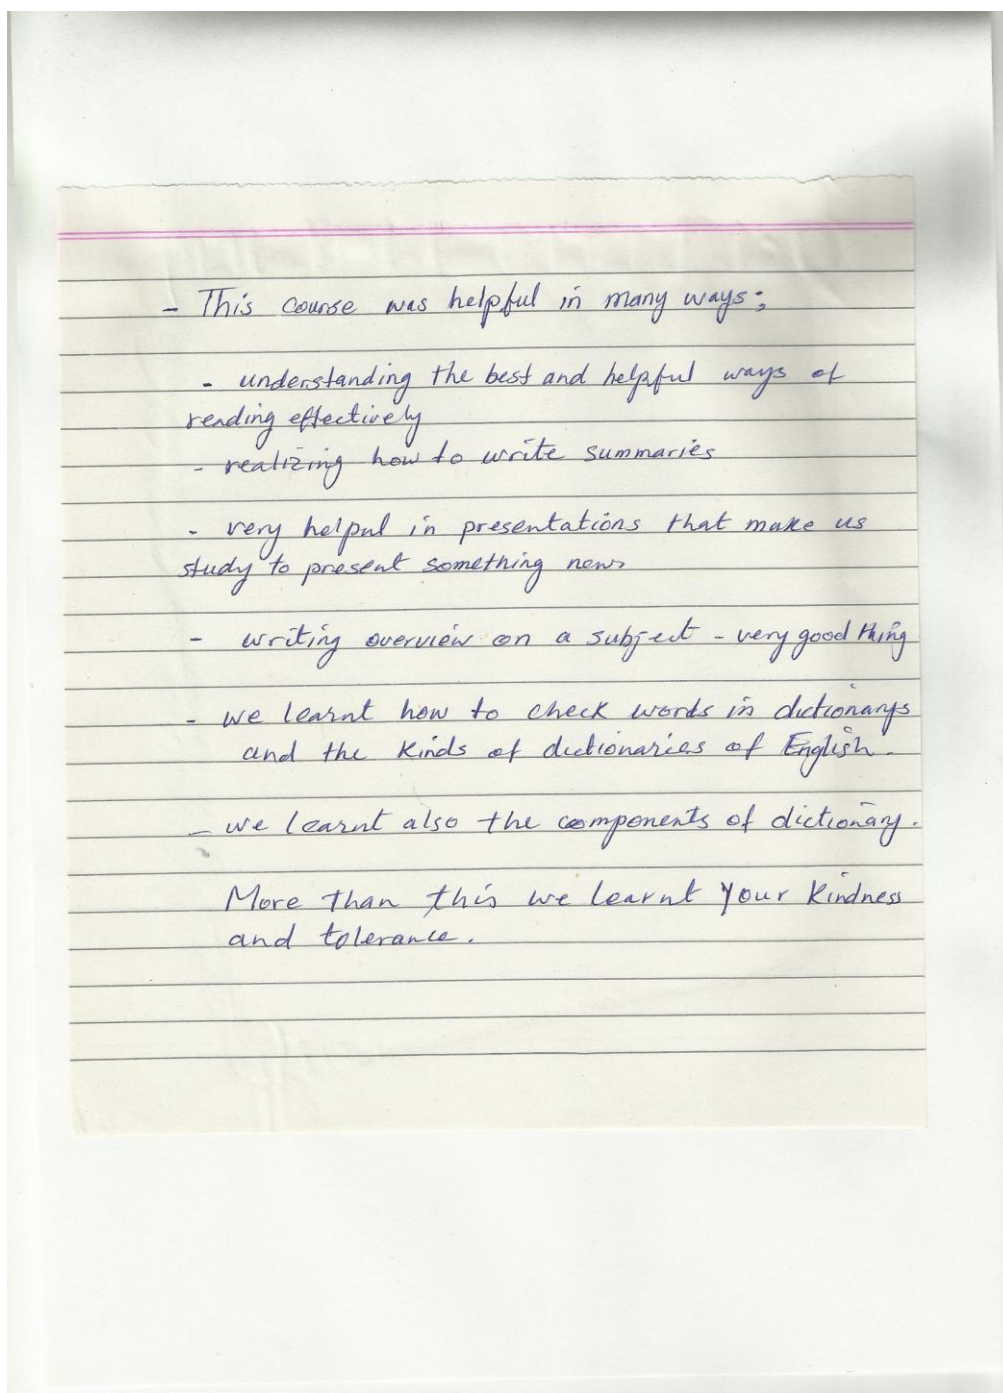 - This course was helpful in many ways;
- understanding the best and helpful ways of
reading effectively
- realizing how to write summaries
- very helpul in presentations that make us
study to present something new
- writing overview on a subject - very good thing
- we learnt how to check words in dictionarys
and the kinds of dictionaries of English.
- we learnt also the components of dictionary.
More than this we learnt your kindness
and tolerance.